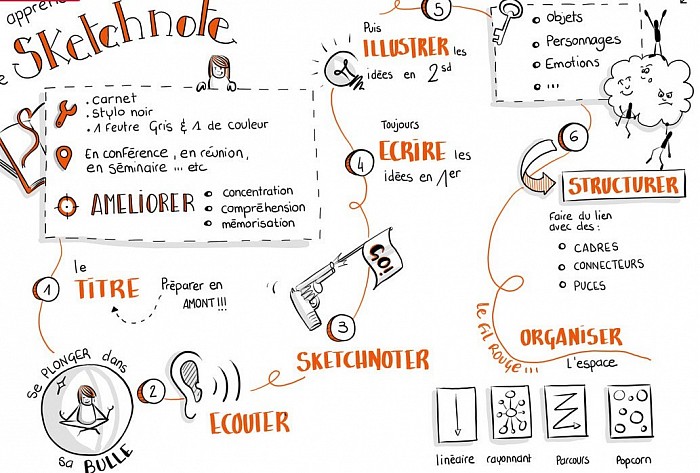 apprend
Sketchnote
. Carnet
. Stylo noir
. 1 Feutre Gris & 1 de couleur
En conférence, en réunion,
en séminaire ... etc
AMELIORER
concentration
compréhension
mémorisation
1
le
TITRE
Préparer en
AMONT!!!
Se PLONGER dans
sa BULLE
2
ECOUTER
3
GO!
SKETCHNOTER
4
Toujours
ECRIRE les
idées en 1er
5
Puis
ILLUSTRER les
idées en 2sd
Objets
Personnages
Emotions
...
6
STRUCTURER
Faire du lien
avec des :
CADRES
CONNECTEURS
PUCES
le FIL ROUGE ...
ORGANISER
L'espace
linéaire
rayonnant
Parcours
Popcorn